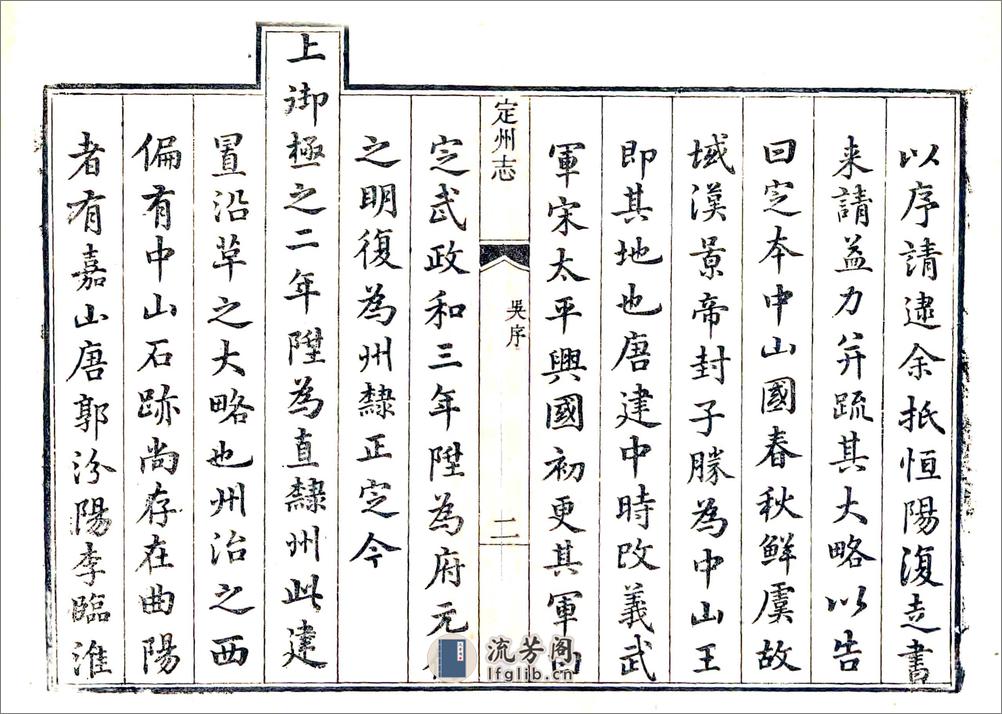 以序請逮余抵恒陽復走書
来請益力并疏其大略以告
曰定本中山國春秋鮮虞故
域漢景帝封子勝為中山王
即其地也唐建中時改義武
軍宋太平興國初更其軍曰
定州志
吳序
二
定武政和三年陞為府元
之明復為州隸正定今
上御極之二年陞為直隸州此建
置沿革之大略也州治之西
偏有中山石跡尚存在曲陽
者有嘉山唐郭汾陽李臨淮
流芳阁
lfglib.cn